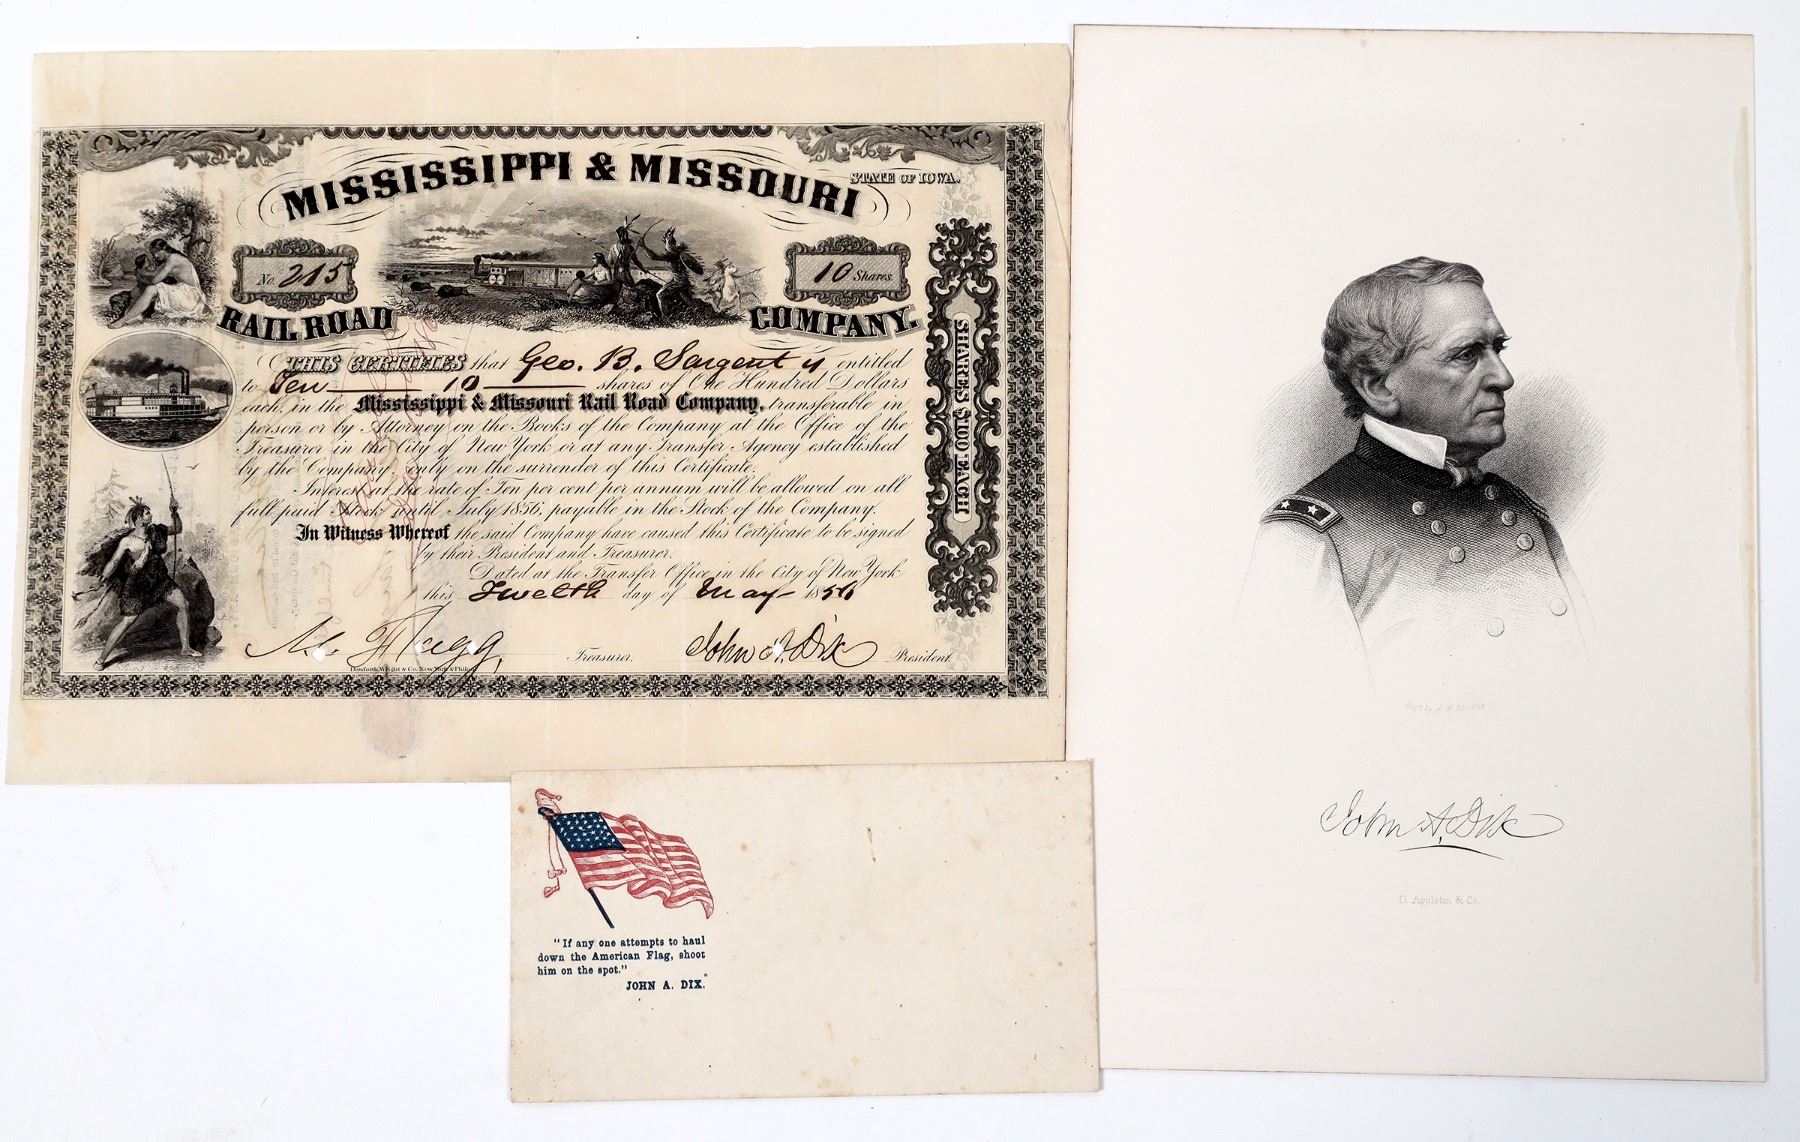 MISSISSIPPI & MISSOURI
STATE OF IOWA.
No. 215
10 Shares.
RAIL ROAD COMPANY.
THIS CERTIFIES that Geo. B. Sargent is entitled
to Ten 10 shares of One Hundred Dollars
each, in the Mississippi & Missouri Rail Road Company, transferable in
person or by Attorney on the Books of the Company at the Office of the
Treasurer in the City of New York or at any Transfer Agency established
by the Company, only on the surrender of this Certificate.
Interest at the rate of Ten per cent per annum will be allowed on all
full paid Stock until July 1856, payable in the Stock of the Company.
In Witness Whereof the said Company have caused this Certificate to be signed
by their President and Treasurer.
Dated at the Transfer Office in the City of New York
this Twelth day of May 185
Flagg Treasurer. John A. Dix President.
Danforth, Wright & Co. New York & Philad
SHARES $100 EACH
John A. Dix
D. Appleton & Co.
"If any one attempts to haul
down the American Flag, shoot
him on the spot."
JOHN A. DIX.